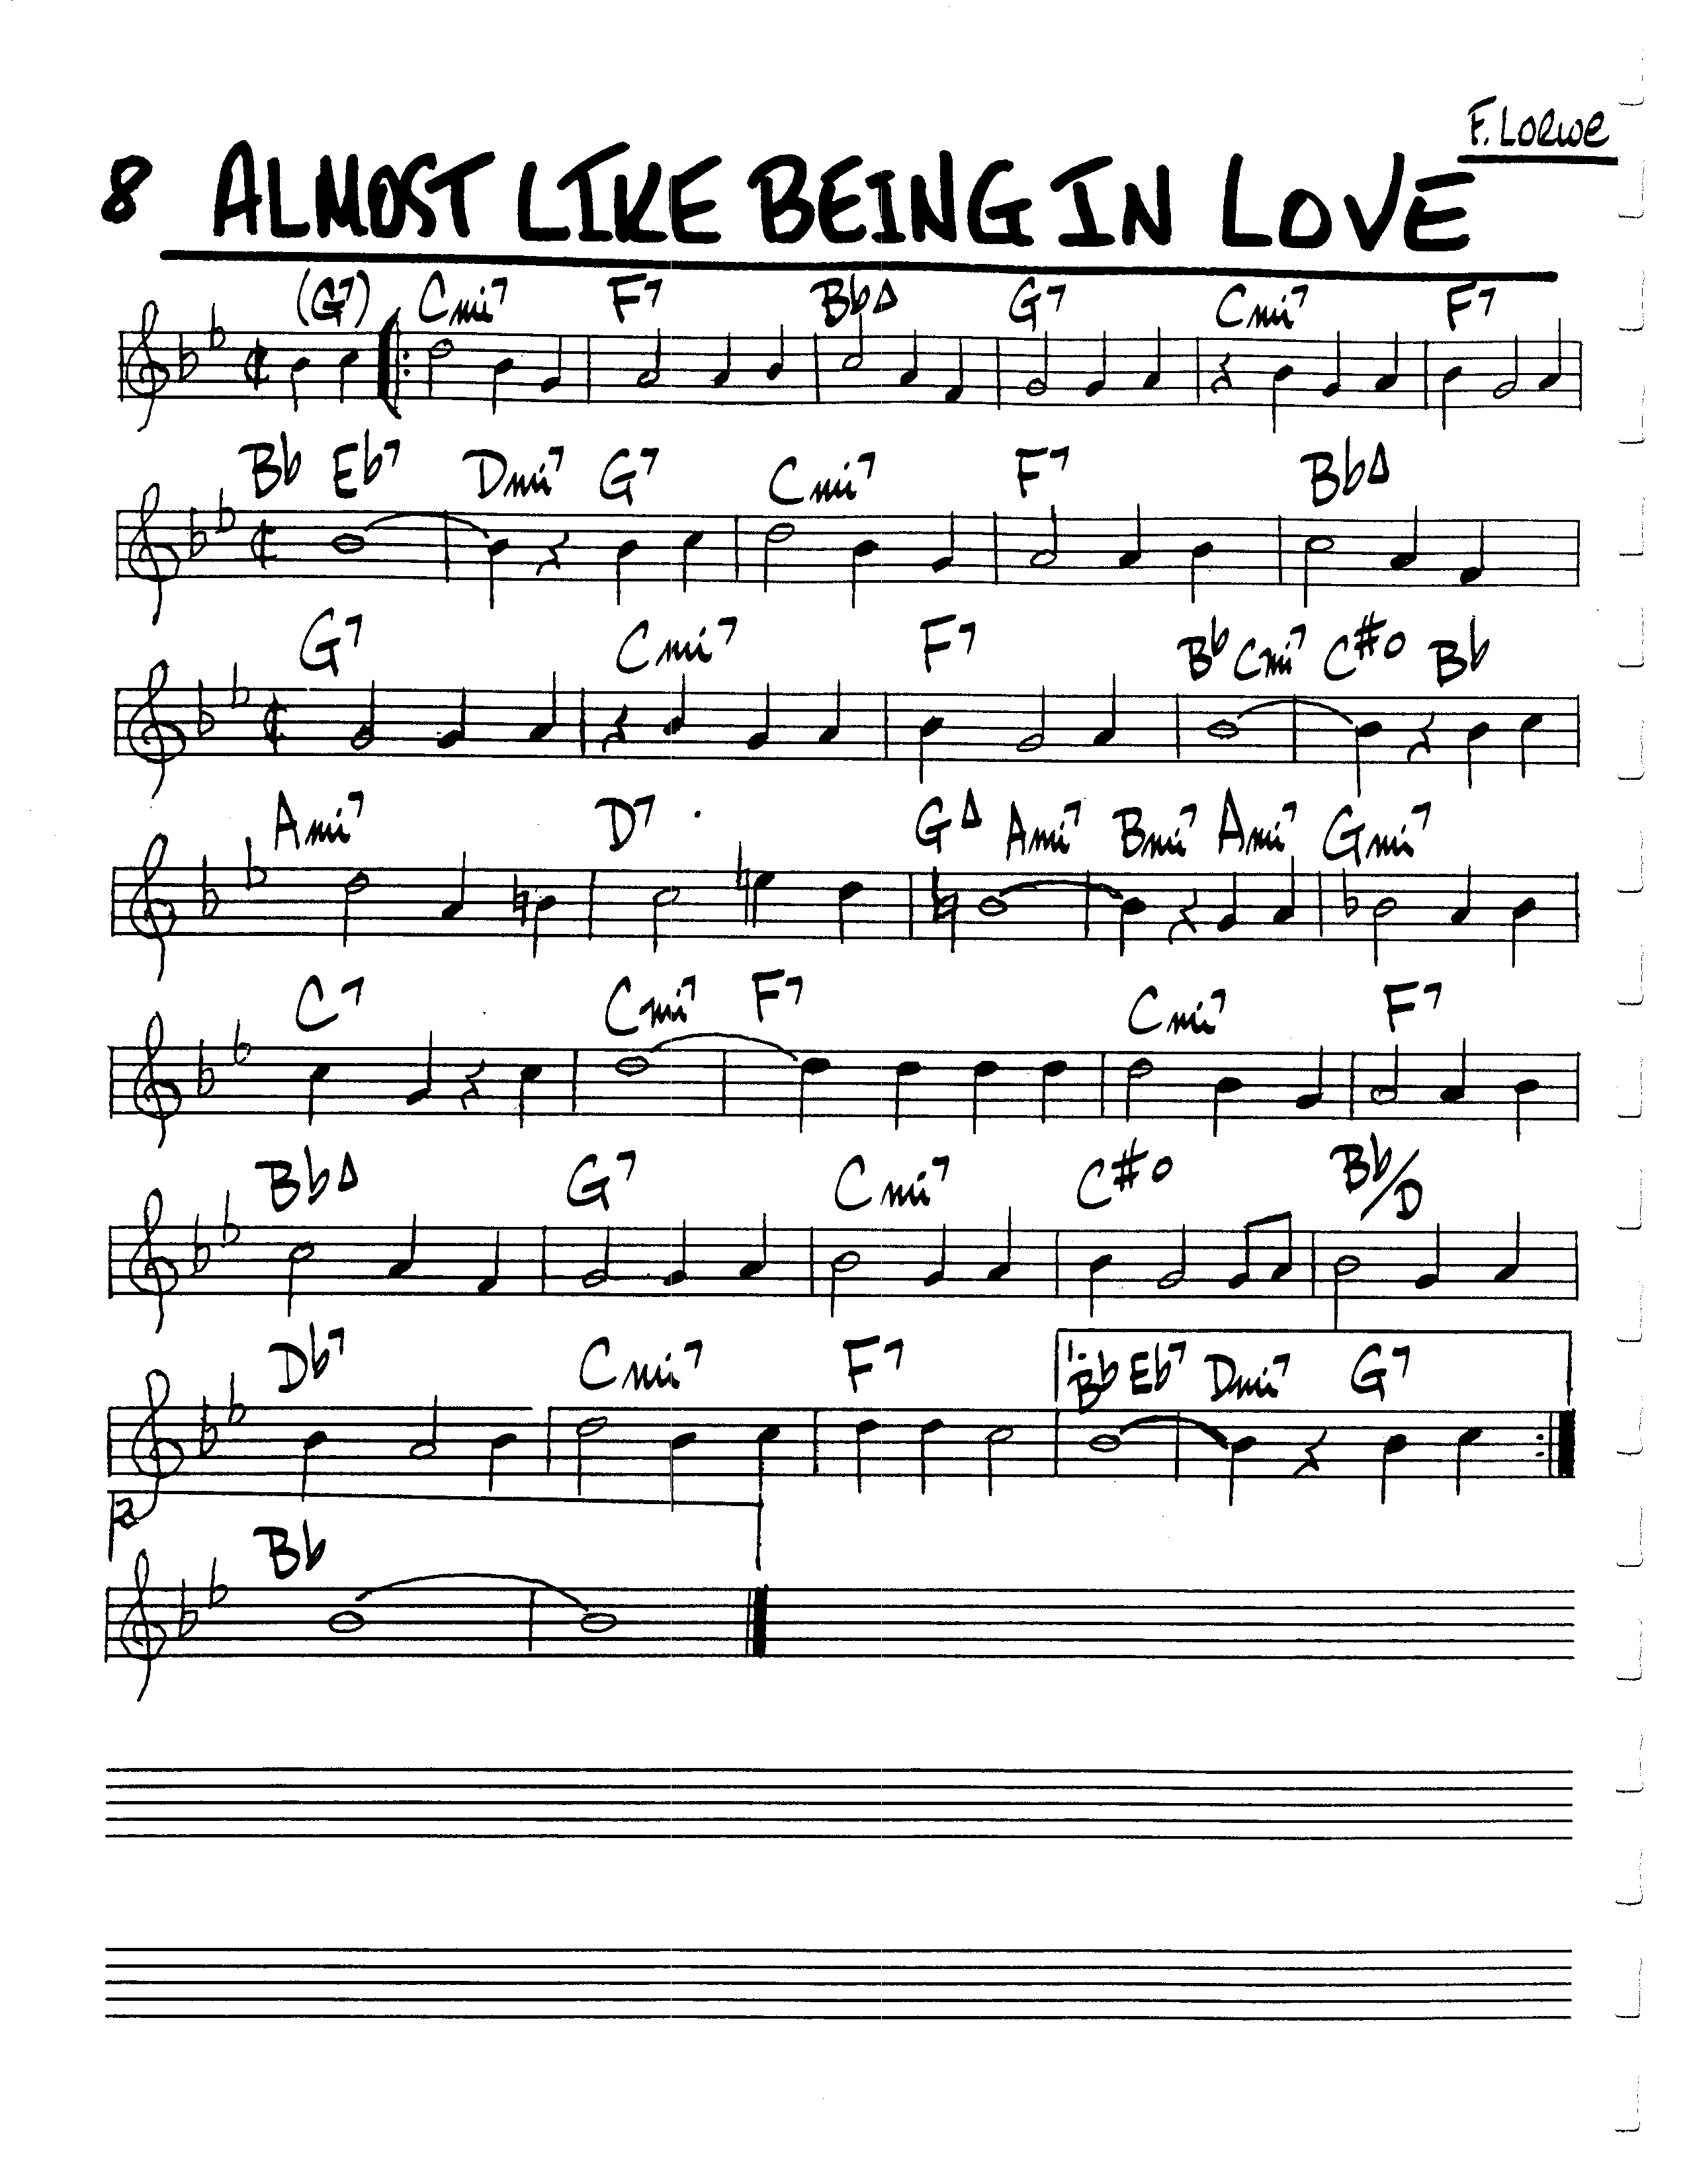 F. Loewe
8 ALMOST LIKE BEING IN LOVE
(G7) Cmi7 F7 BbΔ G7 Cmi7 F7
Bb Eb7 Dmi7 G7 Cmi7 F7 BbΔ
G7 Cmi7 F7 Bb Cmi7 C#o Bb
Ami7 D7 GΔ Ami7 Bmi7 Ami7 Gmi7
C7 Cmi7 F7 Cmi7 F7
BbΔ G7 Cmi7 C#o Bb/D
Db7 Cmi7 F7 1. Bb Eb7 Dmi7 G7
2.
Bb